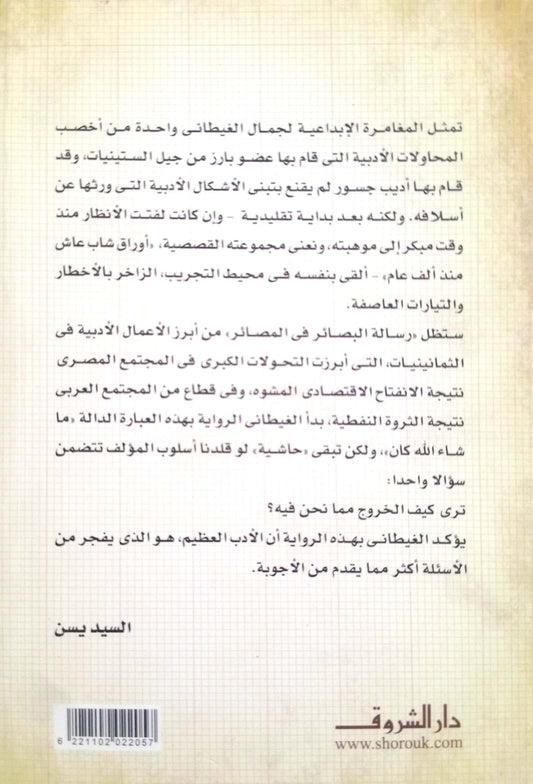 تمثل المغامرة الإبداعية لجمال الغيطانى واحدة من أخصب
المحاولات الأدبية التى قام بها عضو بارز من جيل الستينيات، وقد
قام بها أديب جسور لم يقنع بتبنى الأشكال الأدبية التى ورثها عن
أسلافه. ولكنه بعد بداية تقليدية - وإن كانت لفتت الأنظار منذ
وقت مبكر إلى موهبته، ونعنى مجموعته القصصية، «أوراق شاب عاش
منذ ألف عام» - ألقى بنفسه فى محيط التجريب، الزاخر بالأخطار
والتيارات العاصفة.
ستظل «رسالة البصائر فى المصائر» من أبرز الأعمال الأدبية فى
الثمانينيات، التى أبرزت التحولات الكبرى فى المجتمع المصرى
نتيجة الانفتاح الاقتصادى المشوه، وفى قطاع من المجتمع العربى
نتيجة الثروة النفطية، بدأ الغيطانى الرواية بهذه العبارة الدالة «ما
شاء الله كان»، ولكن تبقى «حاشية» لو قلدنا أسلوب المؤلف تتضمن
سؤالا واحدا:
ترى كيف الخروج مما نحن فيه؟
يؤكد الغيطانى بهذه الرواية أن الأدب العظيم، هو الذى يفجر من
الأسئلة أكثر مما يقدم من الأجوبة.
السيد يسن
دار الشروق
www.shorouk.com
6 221102 022057